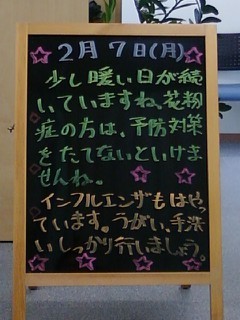 2月7日(月)
少し暖い日が続
いていますね、花粉
症の方は、予防対策
をたてないといけま
せんね。
インフルエンザもはやっ
ています。うがい、手洗
いしっかり行いましょう。